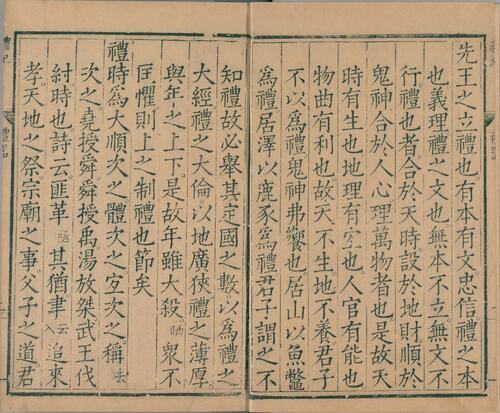 先王之立禮也有本有文忠信禮之本
也義理禮之文也無本不立無文不
行禮也者合於天時設於地財順於
鬼神合於人心理萬物者也是故天
時有生也地理有宜也人官有能也
物曲有利也故天不生地不養君子
不以為禮鬼神弗饗也居山以魚鱉
為禮居澤以鹿豕為禮君子謂之不
知禮故必舉其定國之數以為禮之
大經禮之大倫以地廣狹禮之薄厚
與年之上下是故年雖大殺 衆不
匡懼則上之制禮也節矣
禮時為大順次之體次之宜次之稱去
次之堯授舜舜授禹湯放桀武王伐
紂時也詩云匪革 其猶聿 追來
孝天地之祭宗廟之事父子之道君
禮記